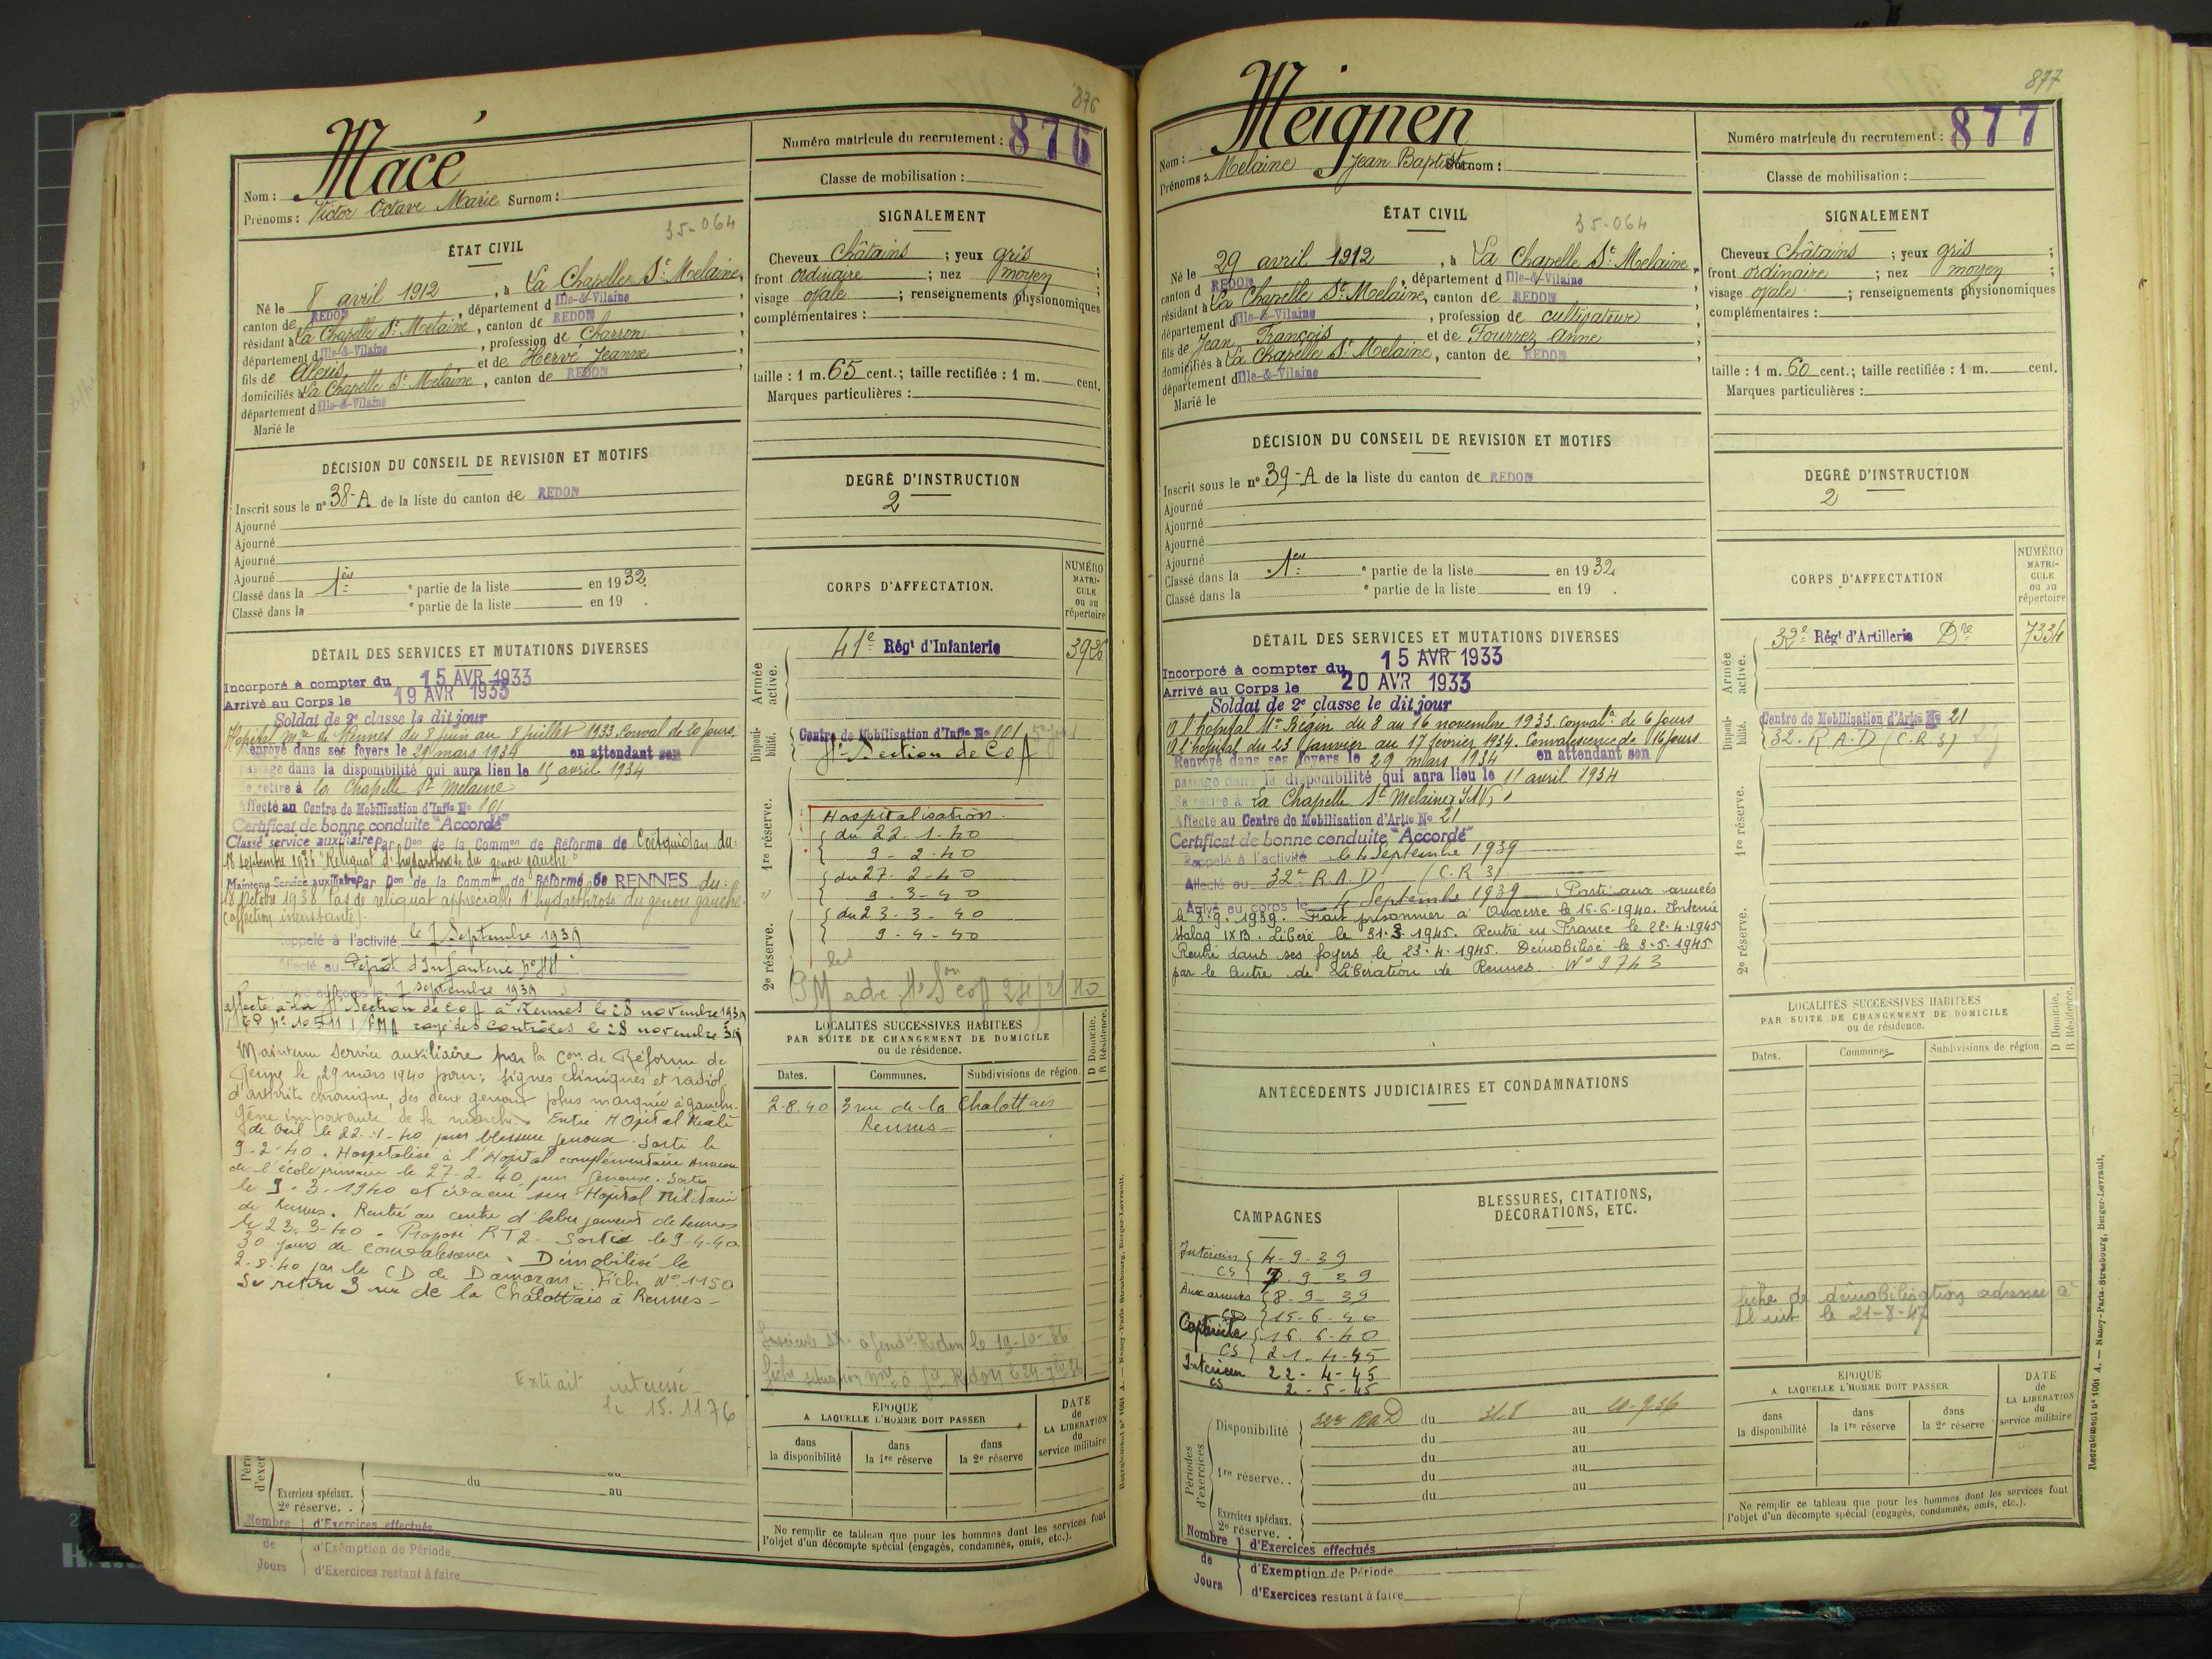 876
Macé
Nom :
Prénoms : Victor Octave Marie Surnom :
35-064
ÉTAT CIVIL
Né le 8 avril 1912, à La Chapelle St Melaine,
canton de REDON, département d Ille-&-Vilaine,
résidant à La Chapelle St Melaine, canton de REDON
département d Ille-&-Vilaine, profession de Charron
fils de Alexis et de Hervé Jeanne
domiciliés à La Chapelle St Melaine, canton de REDON,
département d Ille-&-Vilaine
Marié le
DÉCISION DU CONSEIL DE REVISION ET MOTIFS
Inscrit sous le n° 38-A de la liste du canton de REDON
Ajourné
Ajourné
Ajourné
Ajourné
Classé dans la 1ère partie de la liste en 1932.
Classé dans la e partie de la liste en 19 .
DÉTAIL DES SERVICES ET MUTATIONS DIVERSES
Incorporé à compter du 15 AVR 1933
Arrivé au Corps le 19 AVR 1933
Soldat de 2e classe le dit jour
Hôpital Mre de Rennes du 8 juin au 8 juillet 1933. Conval de 20 jours.
Renvoyé dans ses foyers le 29 mars 1934 en attendant son
passage dans la disponibilité qui aura lieu le 15 avril 1934
Se retire à la Chapelle St Melaine
Affecté au Centre de Mobilisation d'Infie No 101
Certificat de bonne conduite "Accordé"
Classé service auxiliaire par Don de la Common de Réforme de Coëtquidan du :
18 septembre 1936 "Reliquat d'hydarthrose du genou gauche"
Maintenu Service auxiliaire par Don de la Common de Réforme de RENNES du :
18 Octobre 1938 Pas de reliquat appréciable d'hydarthrose du genou gauche
(affection inexistante).
Rappelé à l'activité le 7 Septembre 1939
Affecté au Dépôt d'Infanterie n°
7 septembre 1939
affecté à la Section de COA à Rennes le 28 novembre 1939
rayé des contrôles le 28 novembre 39
Maintenu service auxiliaire par la Con de Réforme de
le 29 mars 1940 pour : signes cliniques et radiol.
d'arthrite chronique, des deux genoux plus marquée à gauche.
Gêne importante de la marche. Entré Hôpital
de le 22-1-40 pour blessure genoux. Sorti le
9-2-40. Hospitalisé à l'Hôpital complémentaire Annexe
de l'école primaire le 27-2-40 pour genoux. Sorti
le 9-3-1940 et évacué sur Hôpital Militaire
de Rennes. Rentré au centre d'hébergement de Rennes
le 23-3-40. Proposé RT2. Sortie le 9-4-40
30 jours de convalescence. Démobilisé le
2-8-40 par le CD de Damazan. Fiche N° 1150
Se retire 3 rue de la Chalottais à Rennes -
Extrait intéressé
le 15.11.76
Exercices spéciaux. du au
2e réserve. .
Nombre de Jours
d'Exercices effectués
d'Exemption de Période
d'Exercices restant à faire
Numéro matricule du recrutement : 876
Classe de mobilisation :
SIGNALEMENT
Cheveux châtains ; yeux gris ;
front ordinaire ; nez moyen ;
visage ovale ; renseignements physionomiques
complémentaires :
taille : 1 m. 65 cent.; taille rectifiée : 1 m. cent.
Marques particulières :
DEGRÉ D'INSTRUCTION
2
CORPS D'AFFECTATION.
NUMÉRO MATRICULE ou au répertoire
Armée active.
41e Régt d'Infanterie
Disponibilité.
Centre de Mobilisation d'Infie No 101
Section de COA
1re réserve.
Hospitalisation.
du 22-1-40
9-2-40
du 27-2-40
9-3-40
du 23-3-40
9-4-40
2e réserve.
LOCALITÉS SUCCESSIVES HABITÉES
PAR SUITE DE CHANGEMENT DE DOMICILE
ou de résidence.
D Domicile. R Résidence.
Dates. Communes. Subdivisions de région.
2-8-40 3 rue de la Chalottais
Rennes
à Redon le 19-10-36
ÉPOQUE
A LAQUELLE L'HOMME DOIT PASSER
dans la disponibilité
dans la 1re réserve
dans la 2e réserve
DATE de LA LIBÉRATION du service militaire
Ne remplir ce tableau que pour les hommes dont les services font
l'objet d'un décompte spécial (engagés, condamnés, omis, etc.).
Recrutement n° 1001 A. — Nancy-Paris-Strasbourg, Berger-Levrault.
877
Meignen
Nom :
Prénoms : Melaine Jean Baptiste Surnom :
35-064
ÉTAT CIVIL
Né le 29 avril 1912, à La Chapelle St Melaine,
canton d REDON, département d Ille-&-Vilaine
résidant à La Chapelle St Melaine, canton de REDON
département d Ille-&-Vilaine, profession de cultivateur
fils de Jean François et de Fourrez Anne
domiciliés à La Chapelle St Melaine, canton de REDON
département d Ille-&-Vilaine
Marié le
DÉCISION DU CONSEIL DE REVISION ET MOTIFS
Inscrit sous le n° 39-A de la liste du canton de REDON
Ajourné
Ajourné
Ajourné
Ajourné
Classé dans la 1ère partie de la liste en 1932
Classé dans la e partie de la liste en 19 .
DÉTAIL DES SERVICES ET MUTATIONS DIVERSES
Incorporé à compter du 15 AVR 1933
Arrivé au Corps le 20 AVR 1933
Soldat de 2e classe le dit jour
A l'hôpital Mre Bégin du 8 au 16 novembre 1933. Convalce de 6 jours
A l'hôpital du 23 janvier au 17 février 1934. Convalescence de 16 jours.
Renvoyé dans ses foyers le 29 mars 1934 en attendant son
passage dans la disponibilité qui aura lieu le 11 avril 1934
Se retire à La Chapelle St Melaine, I et V,
Affecté au Centre de Mobilisation d'Artie No 21
Certificat de bonne conduite "Accordé"
Rappelé à l'activité le 4 Septembre 1939
Affecté au 32e R.A.D (C.R 3)
Arrivé au corps le 4 Septembre 1939 Parti aux armées
le 8.9.1939. Fait prisonnier à Auxerre le 16-6-1940. Interné
Stalag IX B. Libéré le 31-3-1945. Rentré en France le 22-4-1945
Rentré dans ses foyers le 23-4-1945. Démobilisé le 3-5-1945
par le Centre de Libération de Rennes. N° 9743
ANTÉCÉDENTS JUDICIAIRES ET CONDAMNATIONS
CAMPAGNES
Intérieur 4-9-39
CS 7-9-39
Aux armées 8-9-39
CD 15-6-40
Captivité 16-6-40
CS 21-4-45
Intérieur 22-4-45
CS 2-5-45
BLESSURES, CITATIONS,
DÉCORATIONS, ETC.
Périodes d'exercices.
Disponibilité 32e RAD du 31.8 au 20-9-36
du au
du au
1re réserve. . du au
du au
Exercices spéciaux.
2e réserve. .
Nombre de Jours
d'Exercices effectués
d'Exemption de Période
d'Exercices restant à faire
Numéro matricule du recrutement : 877
Classe de mobilisation :
SIGNALEMENT
Cheveux châtains ; yeux gris ;
front ordinaire ; nez moyen ;
visage ovale ; renseignements physionomiques
complémentaires :
taille : 1 m. 60 cent.; taille rectifiée : 1 m. cent.
Marques particulières :
DEGRÉ D'INSTRUCTION
2
CORPS D'AFFECTATION
NUMÉRO MATRICULE ou au répertoire
Armée active.
32e Régt d'Artillerie Dre 7334
Disponibilité.
Centre de Mobilisation d'Artie No 21
32. R.A.D (C.R 3)
1re réserve.
2e réserve.
LOCALITÉS SUCCESSIVES HABITÉES
PAR SUITE DE CHANGEMENT DE DOMICILE
ou de résidence.
D Domicile. R Résidence.
Dates. Communes. Subdivisions de région.
fiche de démobilisation adressée à
l'int le 21-8-47
ÉPOQUE
A LAQUELLE L'HOMME DOIT PASSER
dans la disponibilité
dans la 1re réserve
dans la 2e réserve
DATE de LA LIBÉRATION du service militaire
Ne remplir ce tableau que pour les hommes dont les services font
l'objet d'un décompte spécial (engagés, condamnés, omis, etc.).
Recrutement n° 1001 A. — Nancy-Paris-Strasbourg, Berger-Levrault.